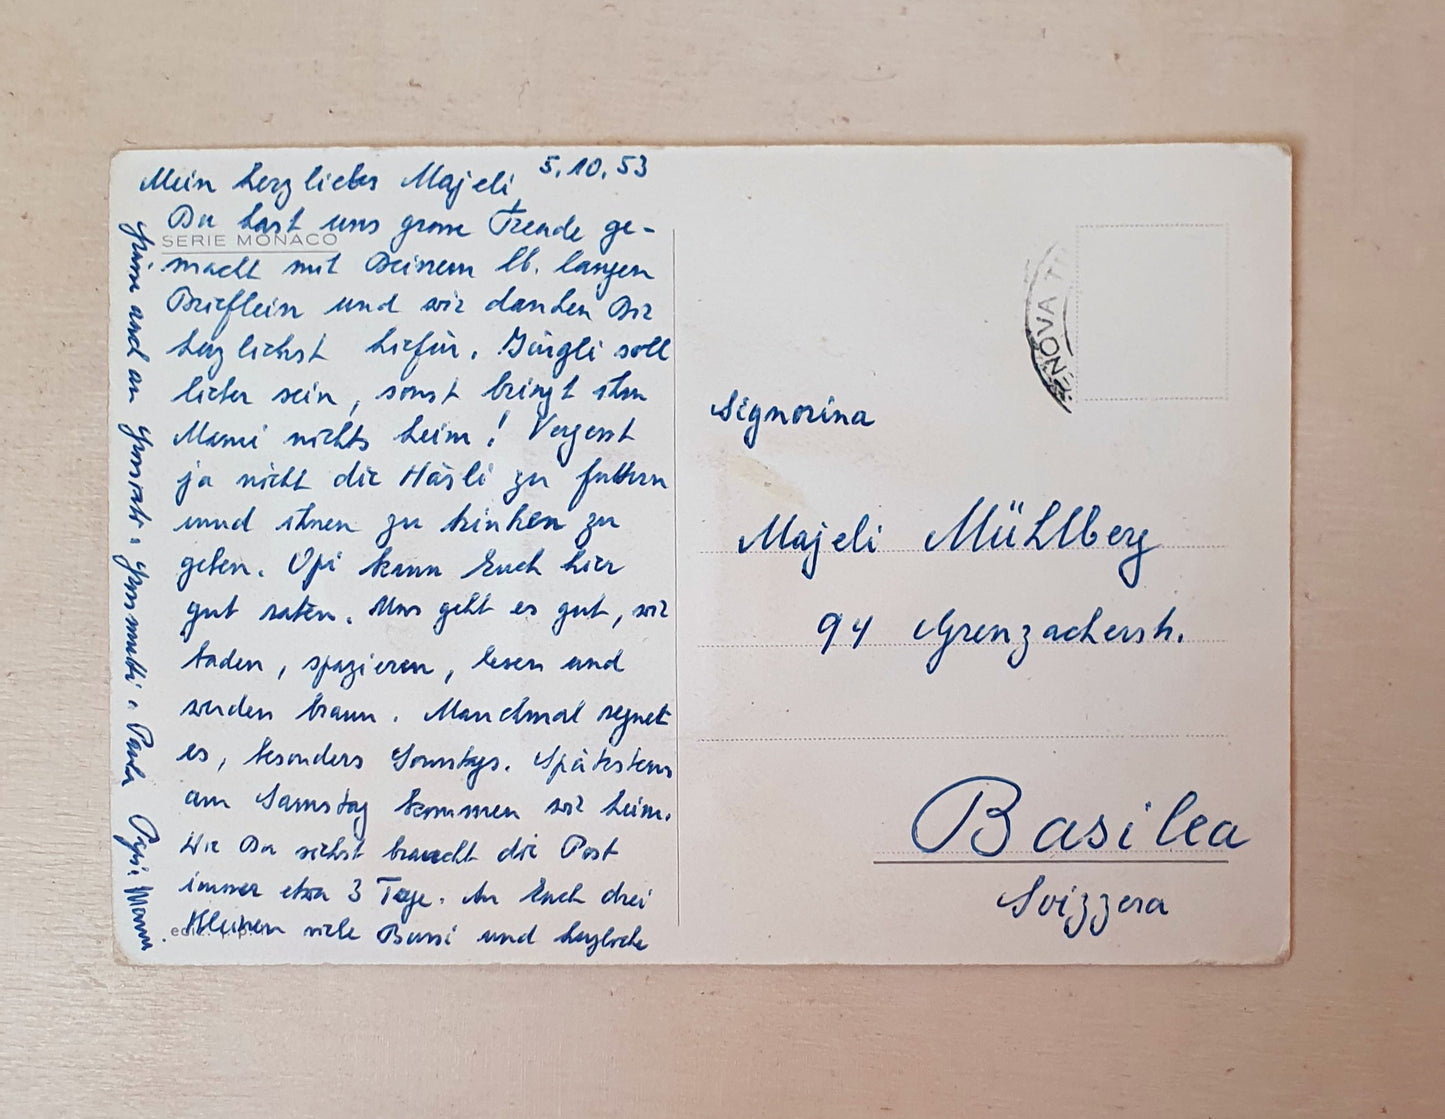 5.10.53
Mein herzliebes Majeli
Du hast uns grosse Freude ge-
SERIE MONACO
macht mit Deinem lb. langen
Brieflein und wir danken Dir
herzlichst hiefür. Jürgli soll
lieber sein, sonst bringt ihm
Mami nichts heim! Vergesst
ja nicht die Häsli zu futtern
und ihnen zu trinken zu
geben. Opi kann Euch hier
gut raten. Uns geht es gut, wir
baden, spazieren, lesen und
werden braun. Manchmal regnet
es, besonders Sonntags. Spätestens
am Samstag kommen wir heim.
Wie Du siehst braucht die Post
immer etwa 3 Tage. An Euch drei
Kleinen viele Bussi und herzliche
Grüsse auch an Grossmutti Paula Papi Mami
ENOVA
Signorina
Majeli Mühlberg
94 Grenzacherstr.
Basilea
Svizzera